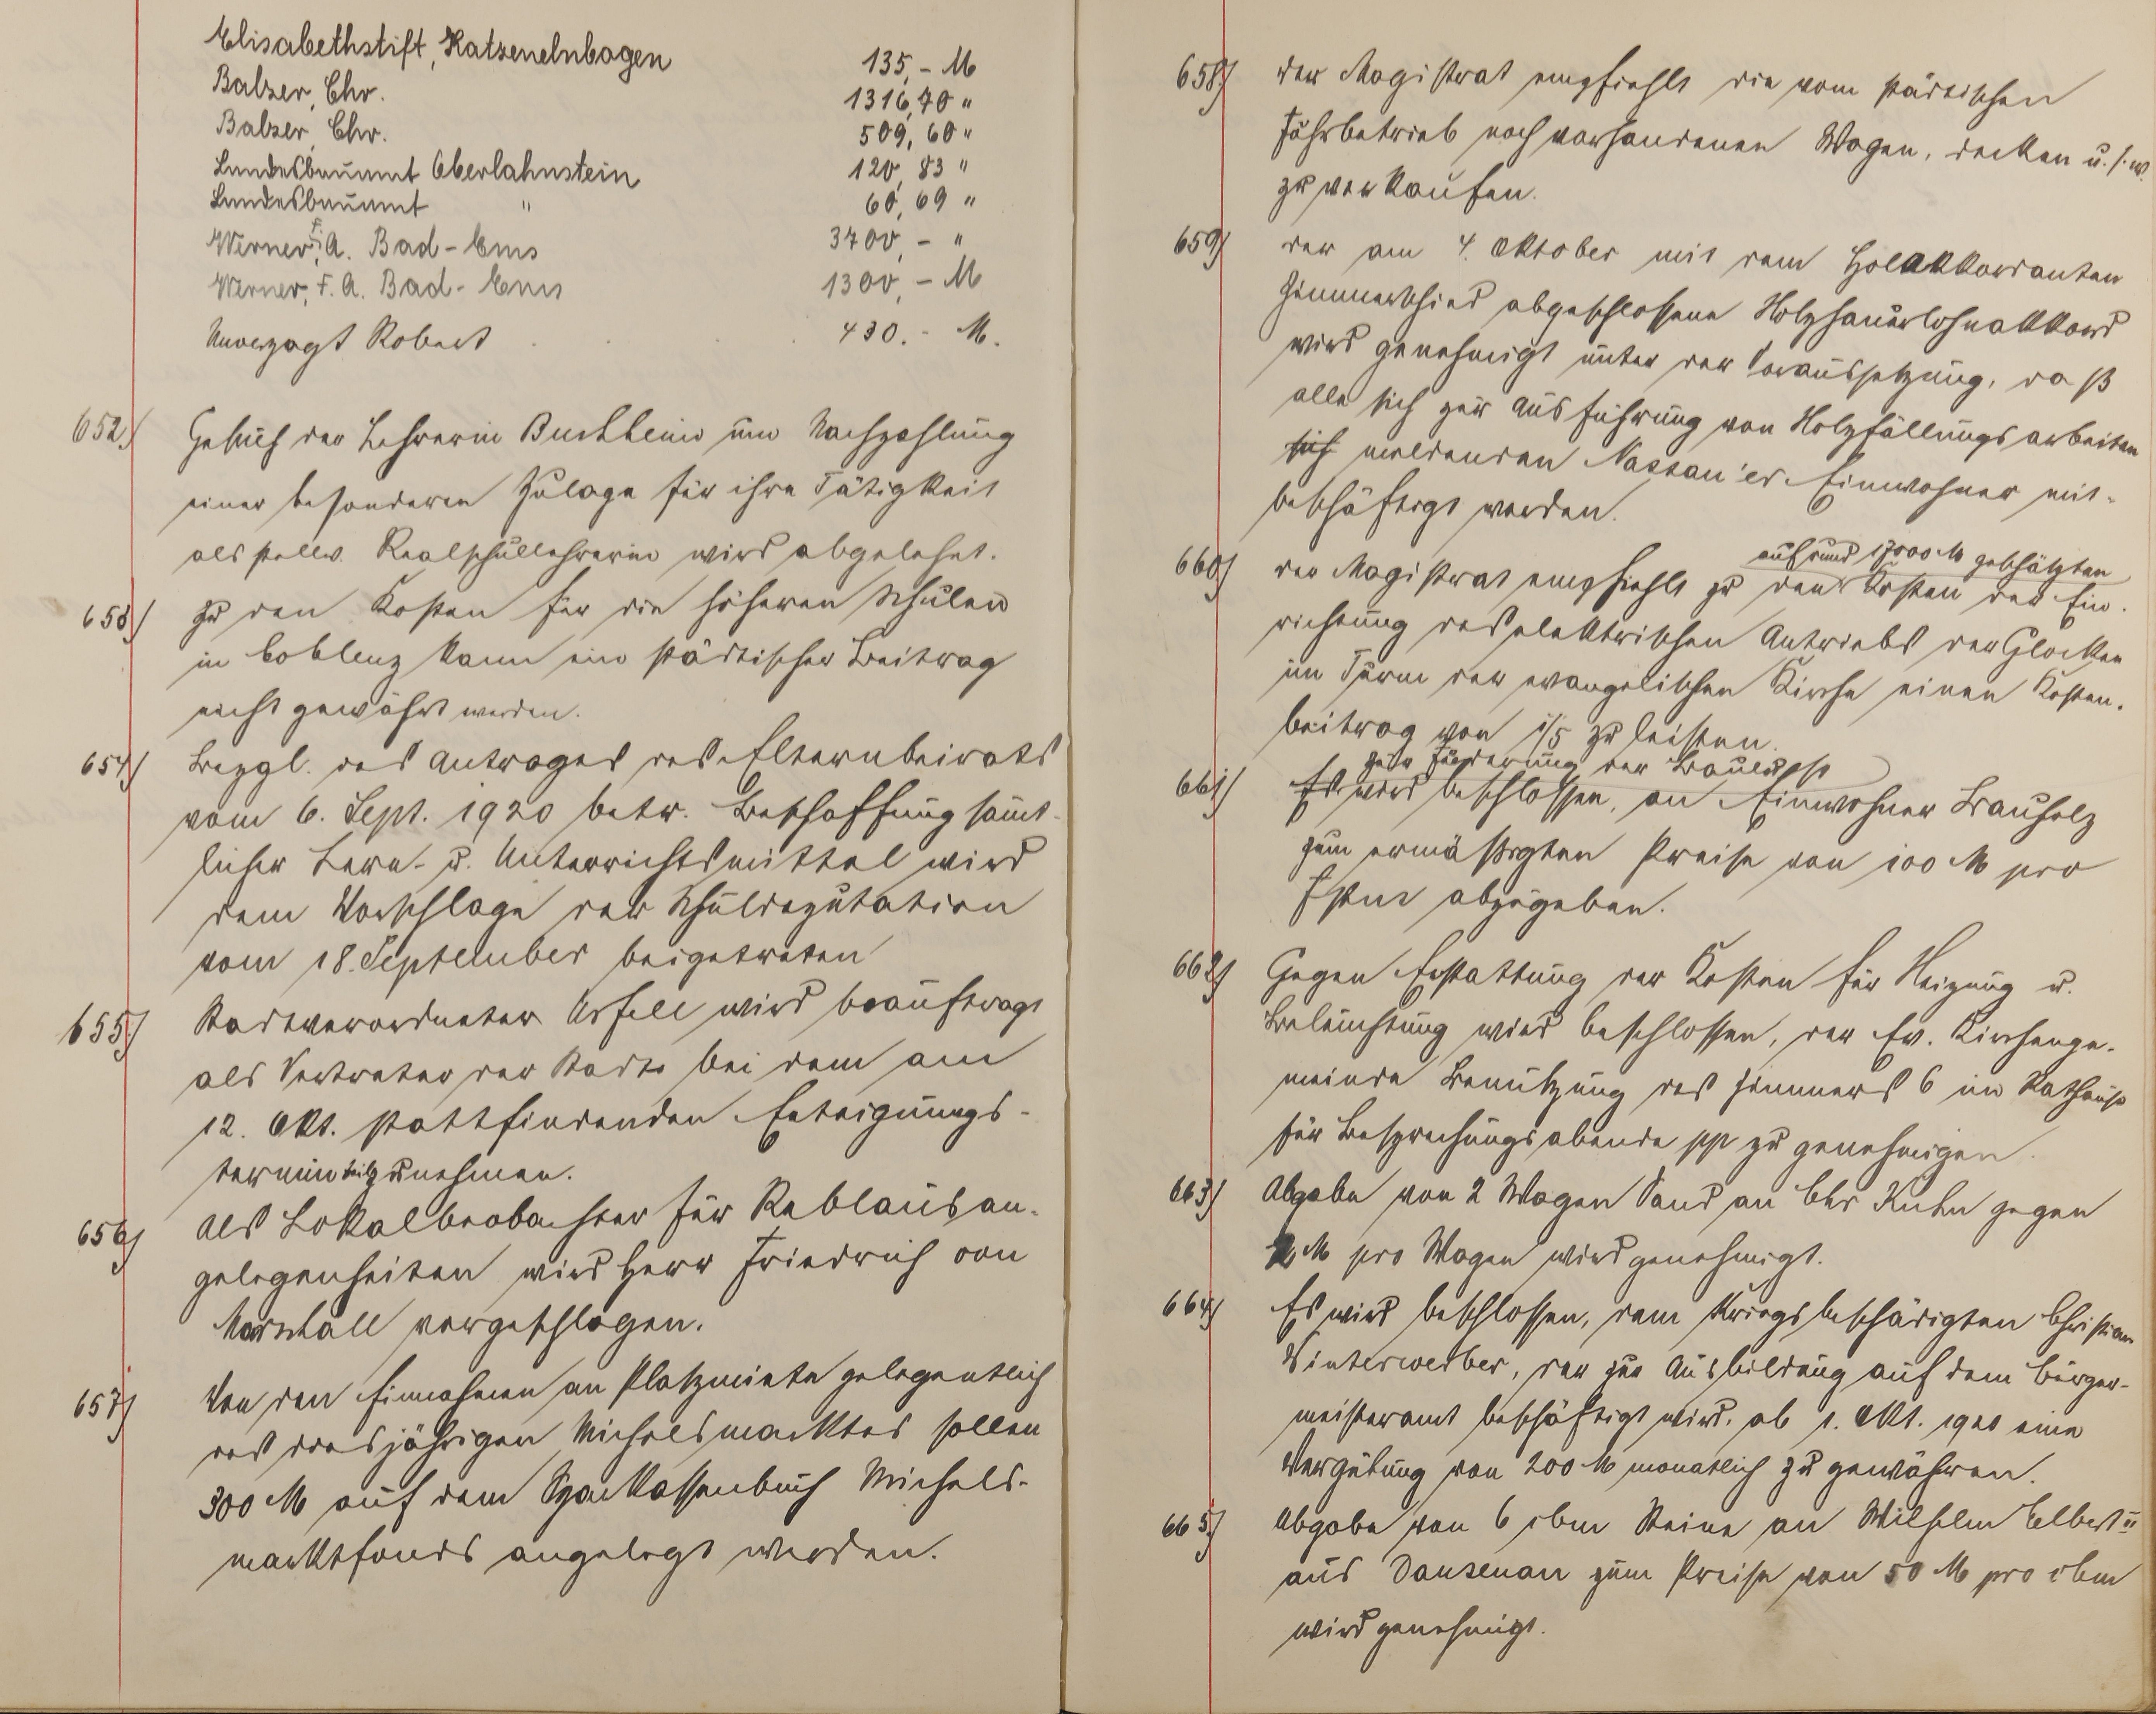 Elisabethstift, Katzenelnbogen 135,- M
Balzer, Chr. 1316,70 "
Balzer, Chr. 509,60 "
Landesbauamt Oberlahnstein 120,83 "
Landesbauamt " 60,69 "
Werner, F. A. Bad-Ems 3700,- "
Werner, F. A. Bad-Ems 1300,- M
Unverzagt Robert 430.- M.
652) Gesuch der Lehrerin Buchheim um Nachzahlung
einer besonderen Zulage für ihre Tätigkeit
als stellv. Realschullehrerin wird abgelehnt.
653) Zu den Kosten für die höheren Schulen
in Coblenz kann ein städtischer Beitrag
nicht gewährt werden.
654) Bezgl. des Antrages des Elternbeirats
vom 6. Sept. 1920 betr. Beschaffung sämt-
licher Lern- u. Unterrichtsmittel wird
dem Vorschlage der Schuldeputation
vom 18. September beigetreten
655) Stadtverordneter wird beauftragt
als Vertreter der Stadt bei dem am
12. Okt. stattfindenden Enteignungs-
termin teilzunehmen.
656) Als Lokalbeobachter für Reblausan-
gelegenheiten wird Herr Friedrich von
Marschall vorgeschlagen.
657) Von den Einnahmen an Platzmiete gelegentlich
des diesjährigen Michelsmarktes sollen
300 M auf dem Sparkassenbuch Michels-
marktfonds angelegt werden.
658) Der Magistrat empfiehlt die vom städtischen
Fuhrbetrieb noch vorhandenen Wagen, Decken u.s.w.
zu verkaufen.
659) Der am 4. Oktober mit dem Holzakkordanten
Zimmerschied abgeschlossene Holzhauerlohnakkord
wird genehmigt unter der Voraussetzung, daß
alle sich zur Ausführung von Holzfällungsarbeiten
sich meldenden Nassau'er Einwohner mit-
beschäftigt werden.
auf rund 17000 M geschätzten
660) Der Magistrat empfiehlt zu den Kosten der Ein-
richtung des elektrischen Antriebs der Glocken
im Turm der evangelischen Kirche einen Kosten-
beitrag von 1/5 zu leisten.
zur Förderung der Baulust
661) Es wird beschlossen, an Einwohner Bauholz
zum ermäßigten Preise von 100 M pro
Fstm abzugeben.
662) Gegen Erstattung der Kosten für Heizung u.
Beleuchtung wird beschlossen, der Ev. Kirchenge-
meinde Benutzung des Zimmers 6 im Rathause
für Besprechungsabende pp zu genehmigen.
663) Abgabe von 2 Wagen Sand an Chr Kuhn gegen
2 M pro Wagen wird genehmigt.
664) Es wird beschlossen, dem Kriegsbeschädigten Christian
Winterwerber, der zur Ausbildung auf dem Bürger-
meisteramt beschäftigt wird, ab 1. Okt. 1920 eine
Vergütung von 200 M monatlich zu gewähren.
665) Abgabe von 6 cbm Steine an Wilhelm Elbert II
aus Dausenau zum Preise von 50 M pro cbm
wird genehmigt.